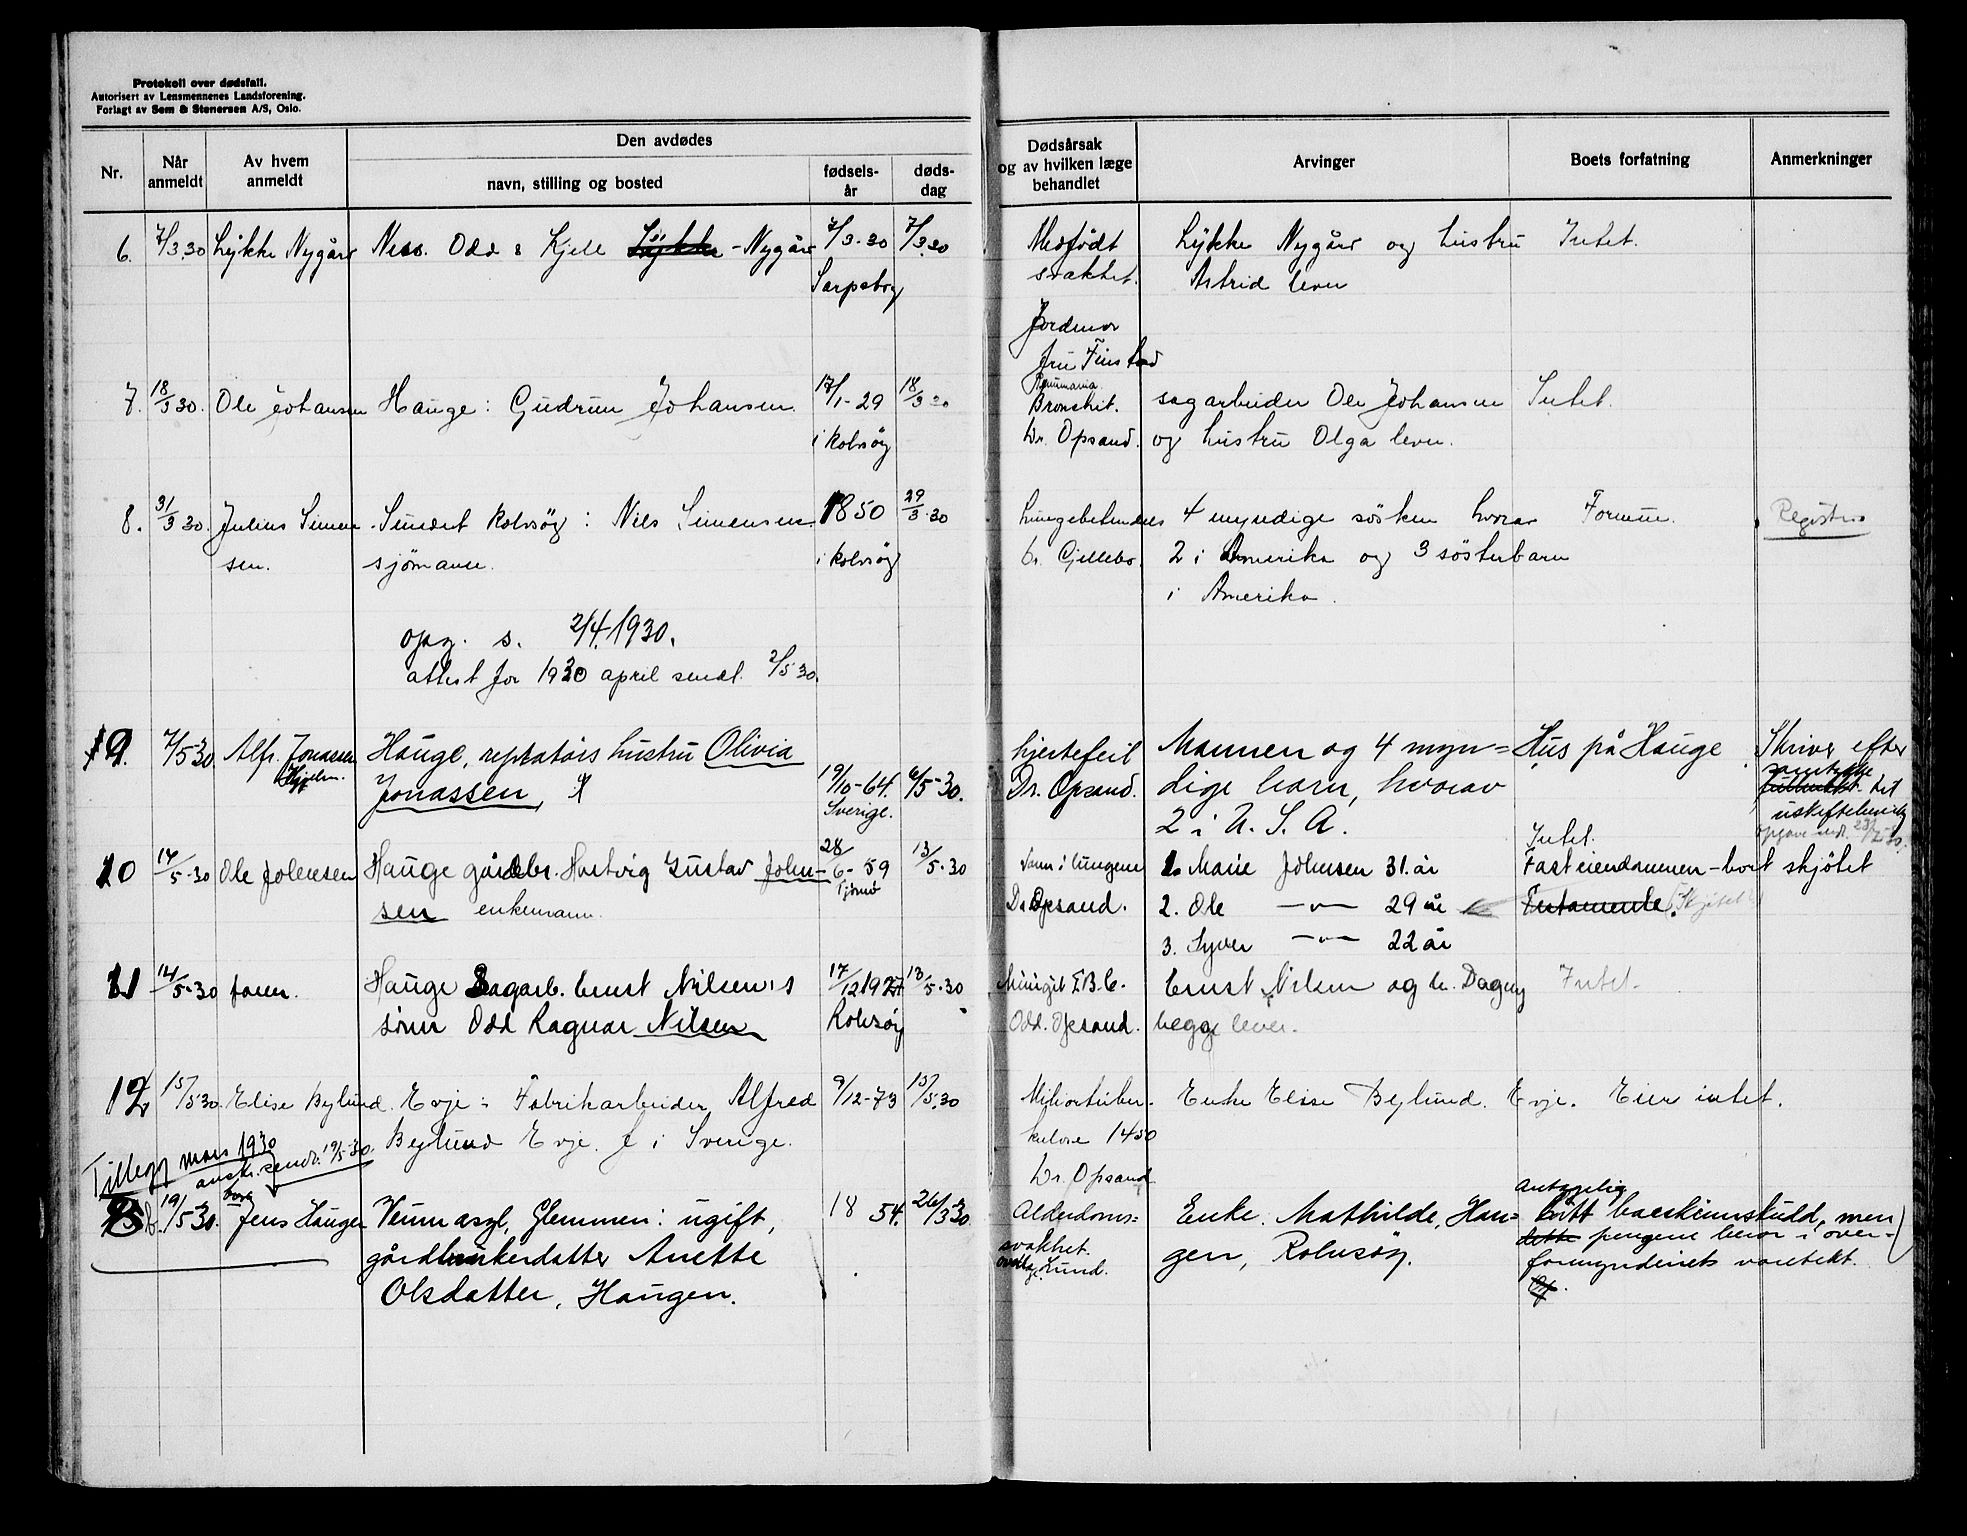 Protokoll over dødsfall.
Autorisert av Lensmennenes Landsforening.
Forlagt av Sem & Stenersen A/S, Oslo.
Nr.
Når anmeldt
Av hvem anmeldt
Den avdødes
navn, stilling og bosted
fødselsår
dødsdag
Dødsårsak og av hvilken læge behandlet
Arvinger
Boets forfatning
Anmerkninger
6. 7/3.30 Lykke Nygård Ness. Odd & Kjell Lykke - Nygård 7/3-30 7/3.30 Medfødt Lykke Nygård og hustru Intet.
Sarpsborg svakhet. Astrid lever
Jordmor
fru Finstad
7. 18/3 30. Ole Johansen Hauge: Gudrun Johansen. 17/1-29 18/3 30 Bronchit. sagarbeider Ole Johansen Intet.
i Rolvsøy Dr. Opsand. og hustru Olga lever.
8. 31/3 30. Julius Simen- Sundet Rolvsøy: Nils Simensen 1850 29/3.30 4 myndige søsken hvorav Formue. Registr.
sen. sjømann. i Rolvsøy Dr. Gjellebo. 2 i Amerika og 3 søsterbarn
i Amerika.
opg. s. 2/4.1930.
attest for 1930 april sendt 2/5 30.
9. 7/5 30. Alf. Jonassen Hauge, hustru Olivia hjertefeil Mannen og 4 myn= Hus på Hauge Skriver efter
Jonassen, 19/10-64. 6/5-30. Dr. Opsand. dige barn, hvorav
Sverige. 2 i U. S. A. uskiftet
10 14/5-30 Ole Johnsen Hauge gårdbr. Hartvig Gustav John- 28/6-59 13/5-30 Vann i lungene 1. Marie Johnsen 31 år Intet.
Fast eiendommen - bort skjøtet
sen enkemann. Tjømø Dr. Opsand. 2. Ole -"- 29 år Testamente. Skjøtet
3. Syver -"- 22 år
11 14/5-30 faren. Hauge Sagarb. Ernst Nilsen's 17/12 1927 13/5-30 Ernst Nilsen og h. Dagny Intet.
sønn Odd Ragnar Nilsen Rolvsøy Odd. Opsand. begge lever.
12 15/5 30. Elise Bylund. Evje: Fabrikarbeider Alfred 9/12-73 15/5.30 Miliærtuber- Enke Elise Bylund. Evje. Eier intet.
Bylund Evje. f i Sverige. kulose 1450
Dr. Opsand
Tillegg mars 1930
sendt. 19/5-30.
19/5 30. Jens Haugen Veum asyl, Glemmen: ugift, 18 54. 26/3 30 Alderdoms= Enke. Mathilde, Hau= Antagelig litt barskinnskudd, men
gårdbrukerdatter Anette svakhet. gen, Rolvsøy. dette pengene beror i over-
Olsdatter, Haugen. Lund. formynderiets varetekt.